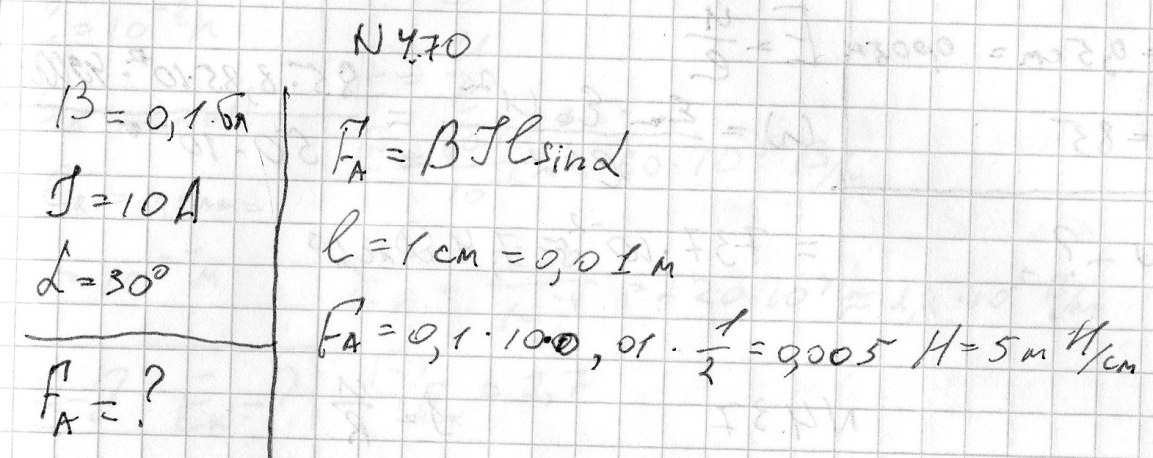 N 4.70
B = 0,1 Тл
J = 10 A
α = 30°
F_A = ?
F_A = BJℓ sin α
ℓ = 1 см = 0,01 м
F_A = 0,1 · 10 · 0,01 · 1/2 = 0,005 Н = 5 м Н/см